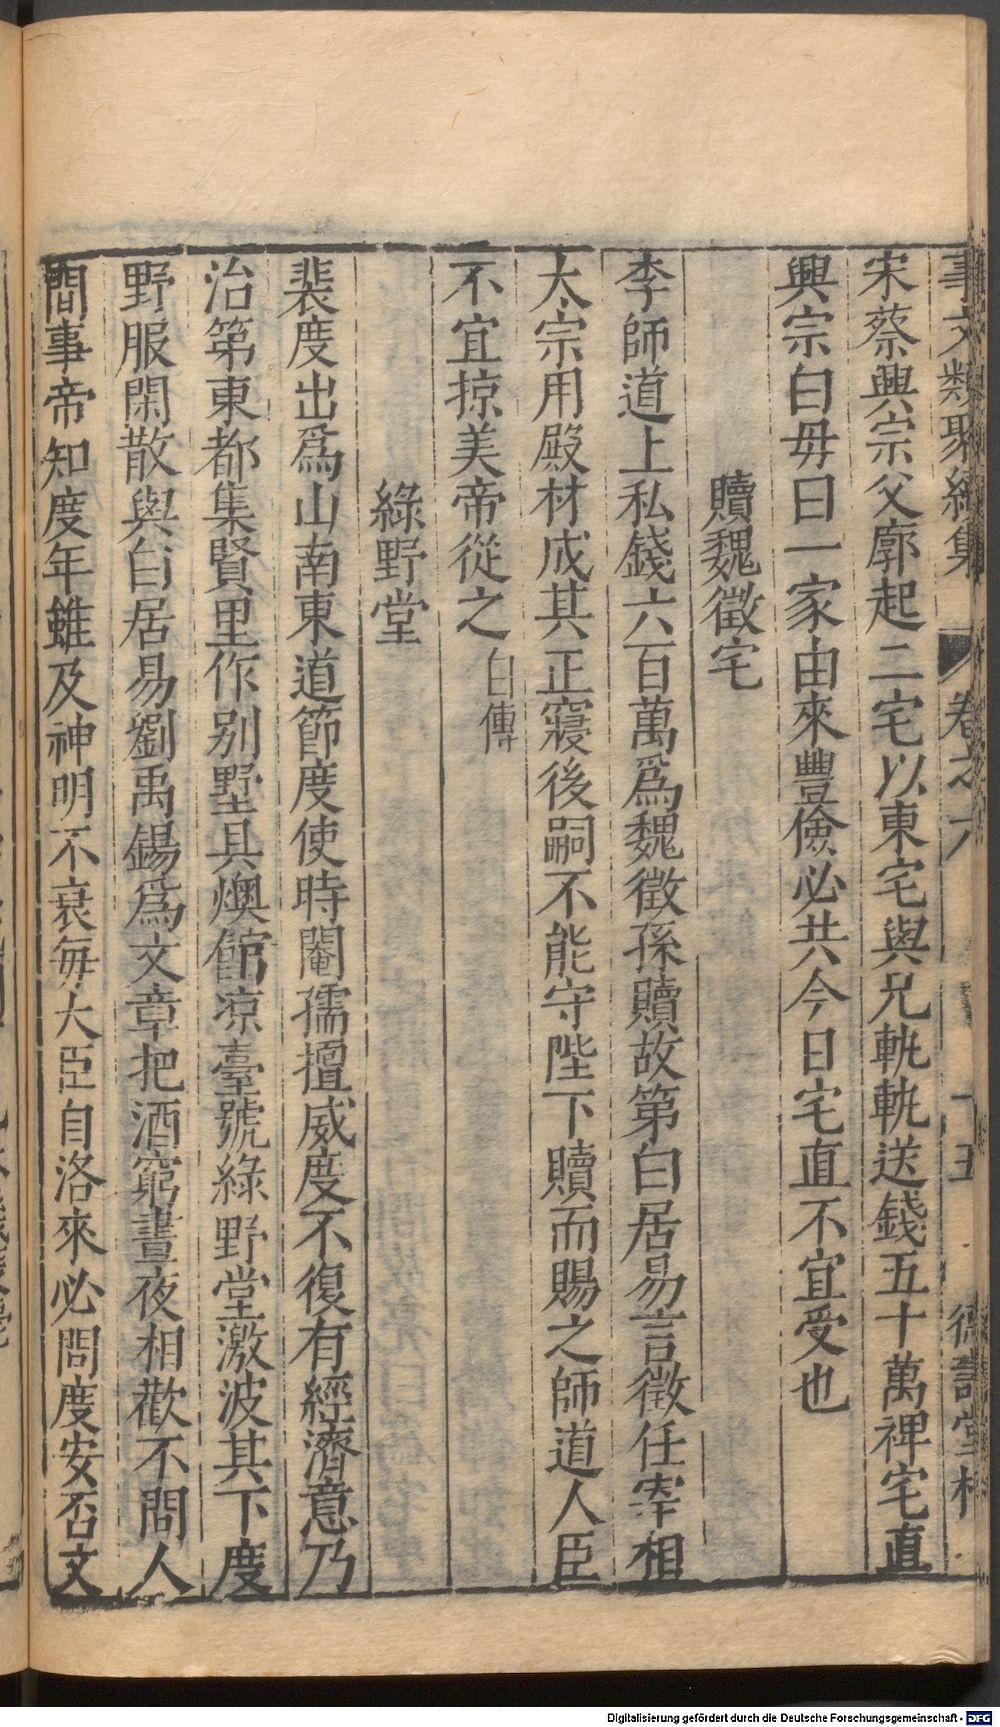 事文類聚續集 卷之六 十五 德壽堂梓
宋蔡興宗父廓起二宅以東宅與兄軌軌送錢五十萬裨宅直
興宗白母曰一家由來豐儉必共今日宅直不宜受也
贖魏徵宅
李師道上私錢六百萬爲魏徵孫贖故第白居易言徵任宰相
太宗用殿材成其正寢後嗣不能守陛下贖而賜之師道人臣
不宜掠美帝從之 白傳
綠野堂
裴度出爲山南東道節度使時閹孺擅威度不復有經濟意乃
治第東都集賢里作別墅具燠館凉臺號綠野堂激波其下度
野服閑散與白居易劉禹錫爲文章把酒窮晝夜相歡不問人
間事帝知度年雖及神明不衰每大臣自洛來必問度安否文
Digitalisierung gefördert durch die Deutsche Forschungsgemeinschaft - DFG